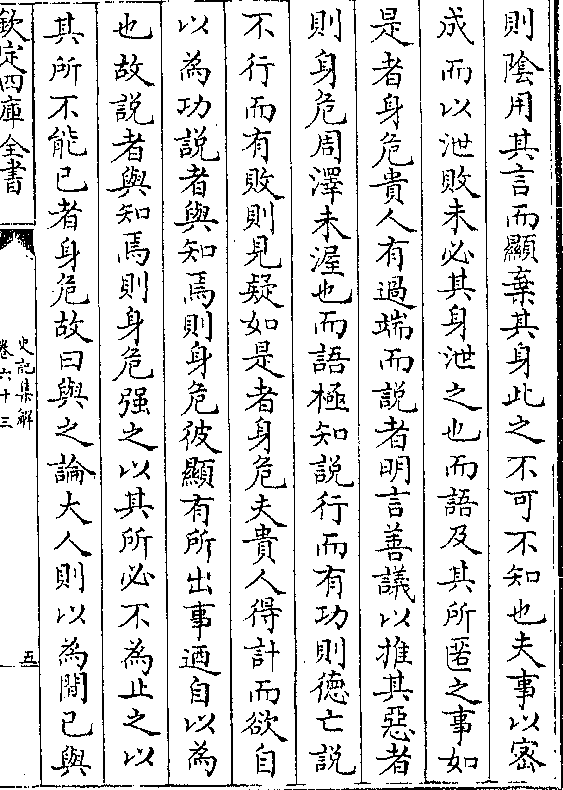 則陰用其言而顯棄其身此之不可不知也夫事以密
成而以泄敗未必其身泄之也而語及其所匿之事如
是者身危貴人有過端而說者明言善議以推其惡者
則身危周澤未渥也而語極知說行而有功則德亡說
不行而有敗則見疑如是者身危夫貴人得計而欲自
以為功說者與知焉則身危彼顯有所出事迺自以為
也故說者與知焉則身危强之以其所必不為止之以
其所不能已者身危故曰與之論大人則以為閒己與
欽定四庫全書
史記集解
卷六十三
五